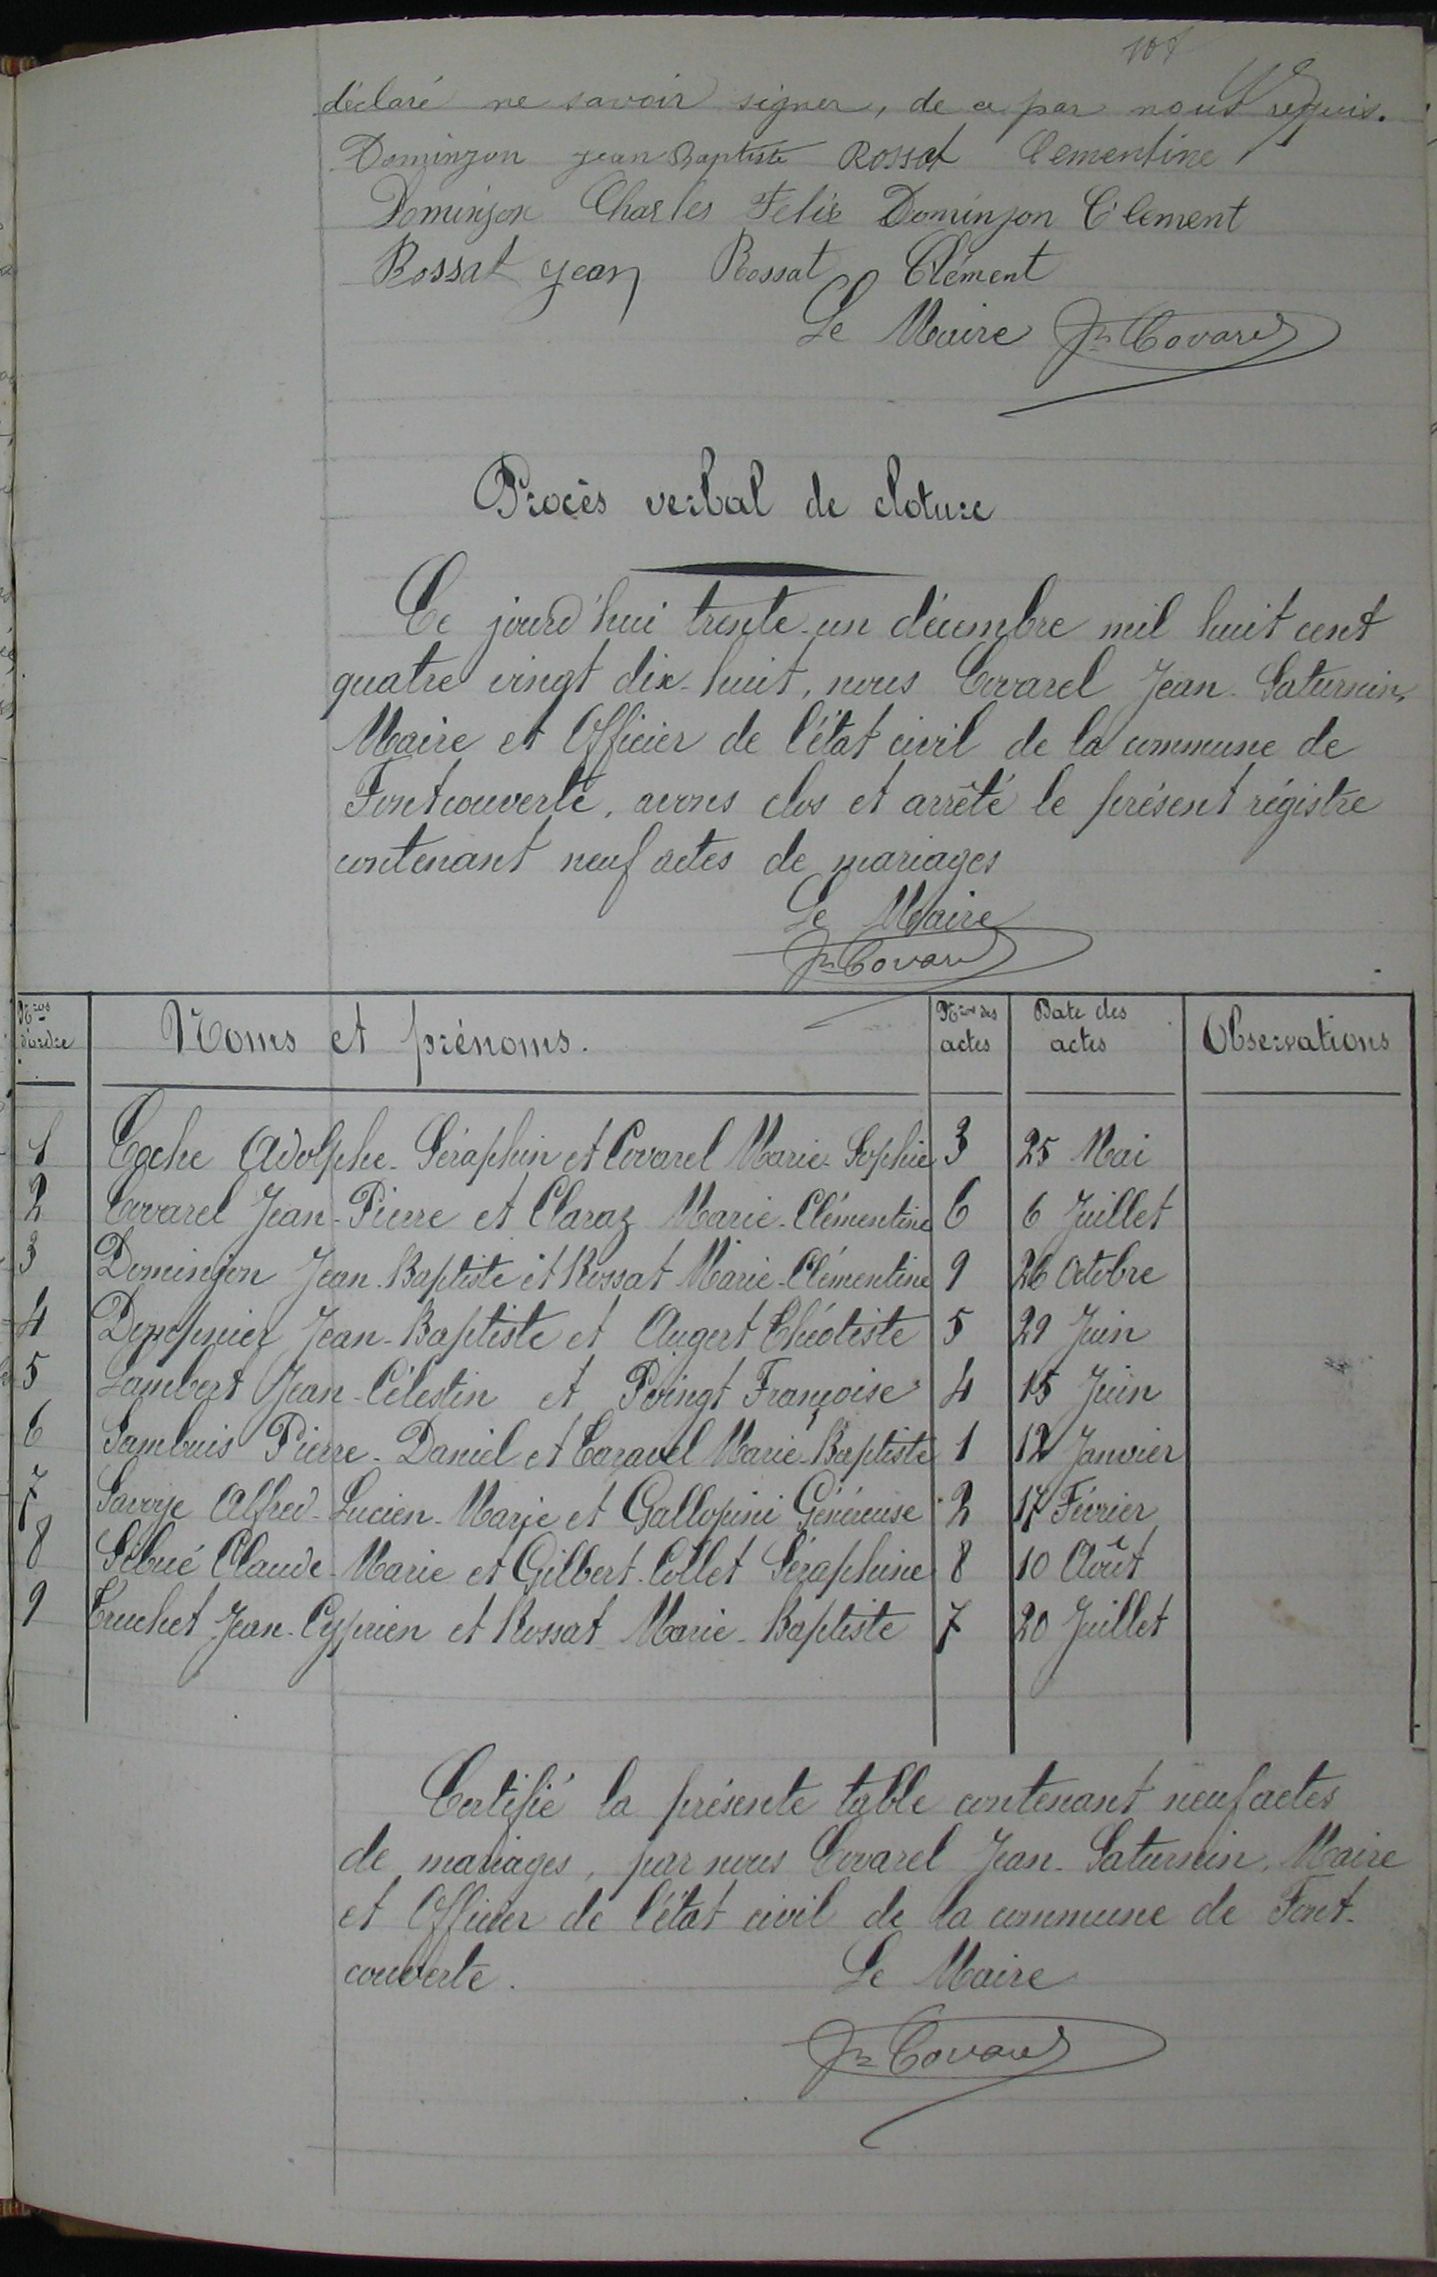 107
déclaré ne savoir signer, de ce par nous requis.
Dominjon jean Baptiste Rossat Clementine
Dominjon Charles Felix Dominjon Clement
Rossat jean Rossat Clément
Le Maire Jn Covarel
Procès verbal de cloture
Ce jourd'hui trente-un décembre mil huit cent
quatre vingt dix-huit, nous Covarel Jean-Saturnin,
Maire et Officier de l'état civil de la commune de
Fontcouverte, avons clos et arrêté le présent régistre
contenant neuf actes de mariages
Le Maire
Jn Covarel
Nros d'ordre Noms et prénoms. Nros des actes Date des actes Observations
1 Coche Adolphe-Séraphin et Covarel Marie-Sophie 3 25 Mai
2 Covarel Jean-Pierre et Claraz Marie-Clémentine 6 6 Juillet
3 Dominjon Jean-Baptiste et Rossat Marie-Clémentine 9 26 Octobre
4 Jean-Baptiste et Augert Théotiste 5 29 Juin
5 Lambert Jean-Célestin et Françoise 4 15 Juin
6 Sambuis Pierre-Daniel et Marie-Baptiste 1 12 Janvier
7 Savoye Alfred-Lucien-Marie et Gallopini Généreuse 2 17 Février
8 Sibué Claude-Marie et Gilbert-Collet Séraphine 8 10 Août
9 Truchet Jean-Cyprien et Rossat Marie-Baptiste 7 20 Juillet
Certifié la présente table contenant neuf actes
de mariages, par nous Covarel Jean-Saturnin, Maire
et Officier de l'état civil de la commune de Font-
couverte. Le Maire
Jn Covarel